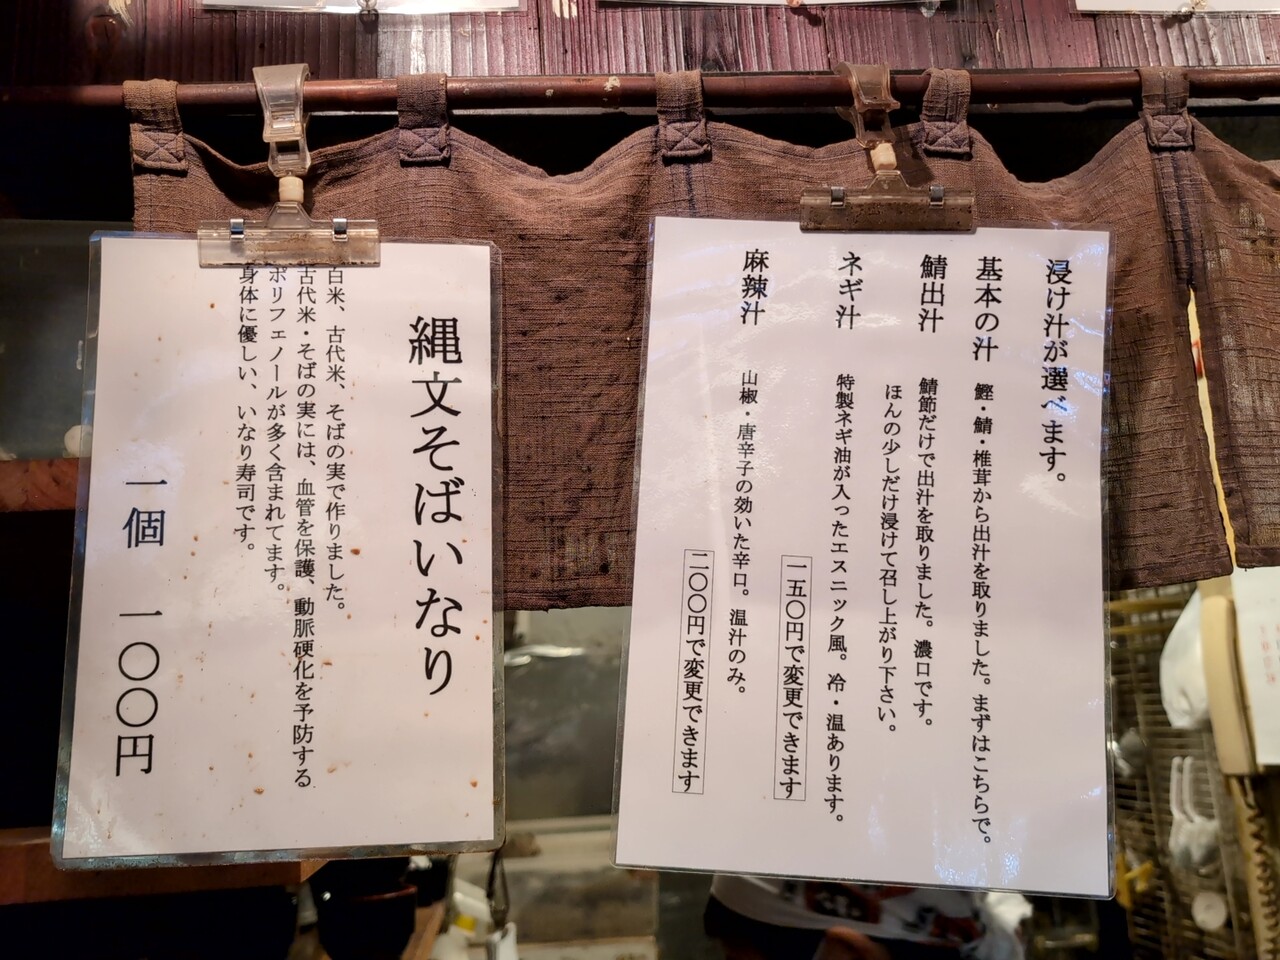 浸け汁が選べます。
基本の汁　鰹・鯖・椎茸から出汁を取りました。まずはこちらで。
鯖出汁　鯖節だけで出汁を取りました。濃口です。
ほんの少しだけ浸けて召し上がり下さい。
ネギ汁　特製ネギ油が入ったエスニック風。冷・温あります。
一五〇円で変更できます
麻辣汁　山椒・唐辛子の効いた辛口。温汁のみ。
二〇〇円で変更できます
縄文そばいなり
白米、古代米、そばの実で作りました。
古代米・そばの実には、血管を保護、動脈硬化を予防する
ポリフェノールが多く含まれてます。
身体に優しい、いなり寿司です。
一個　一〇〇円